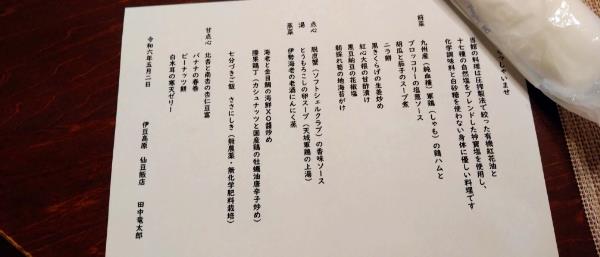 っしゃいませ
当館の料理は圧搾製法で絞った有機紅花油と
十七種の自然塩をブレンドした特寶塩を使用し、
化学調味料と白砂糖を使わない身体に優しい料理です
前菜
九州産（純血種）軍鶏（しゃも）の鶏ハムと
ブロッコリーの塩麹ソース
胡瓜と茄子のスープ煮
ニラ餅
黒きくらげの生姜炒め
紅心大根の甘酢漬け
黒豆納豆の花椒塩
朝採れ筍の地海苔がけ
点心 脱皮蟹（ソフトシェルクラブ）の香味ソース
湯 とうもろこしの卵スープ（天城軍鶏の上湯）
蒸菜 伊勢海老の老酒にんにく蒸
海老と金目鯛の海鮮ＸＯ醤炒め
腰果鶏丁（カシュナッツと国産鶏の牡蠣油唐辛子炒め）
七分づきご飯 ささにしき（無農薬・無化学肥料栽培）
甘点心 北杏と南杏の杏仁豆富
バナナの春巻
ピーナッツ餅
白木耳の寒天ゼリー
令和六年五月二日
伊豆高原 仙豆飯店 田中竜太郎